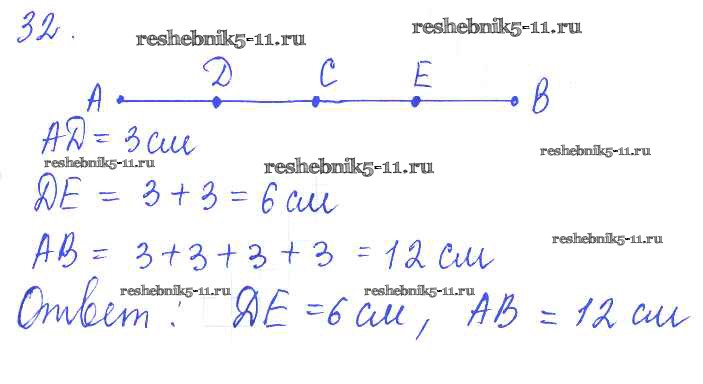 32.
reshebnik5-11.ru
reshebnik5-11.ru
A D C E B
AD = 3 см
reshebnik5-11.ru
reshebnik5-11.ru
reshebnik5-11.ru
DE = 3 + 3 = 6 см
AB = 3 + 3 + 3 + 3 = 12 см
reshebnik5-11.ru
reshebnik5-11.ru
reshebnik5-11.ru
Ответ: DE = 6 см, AB = 12 см